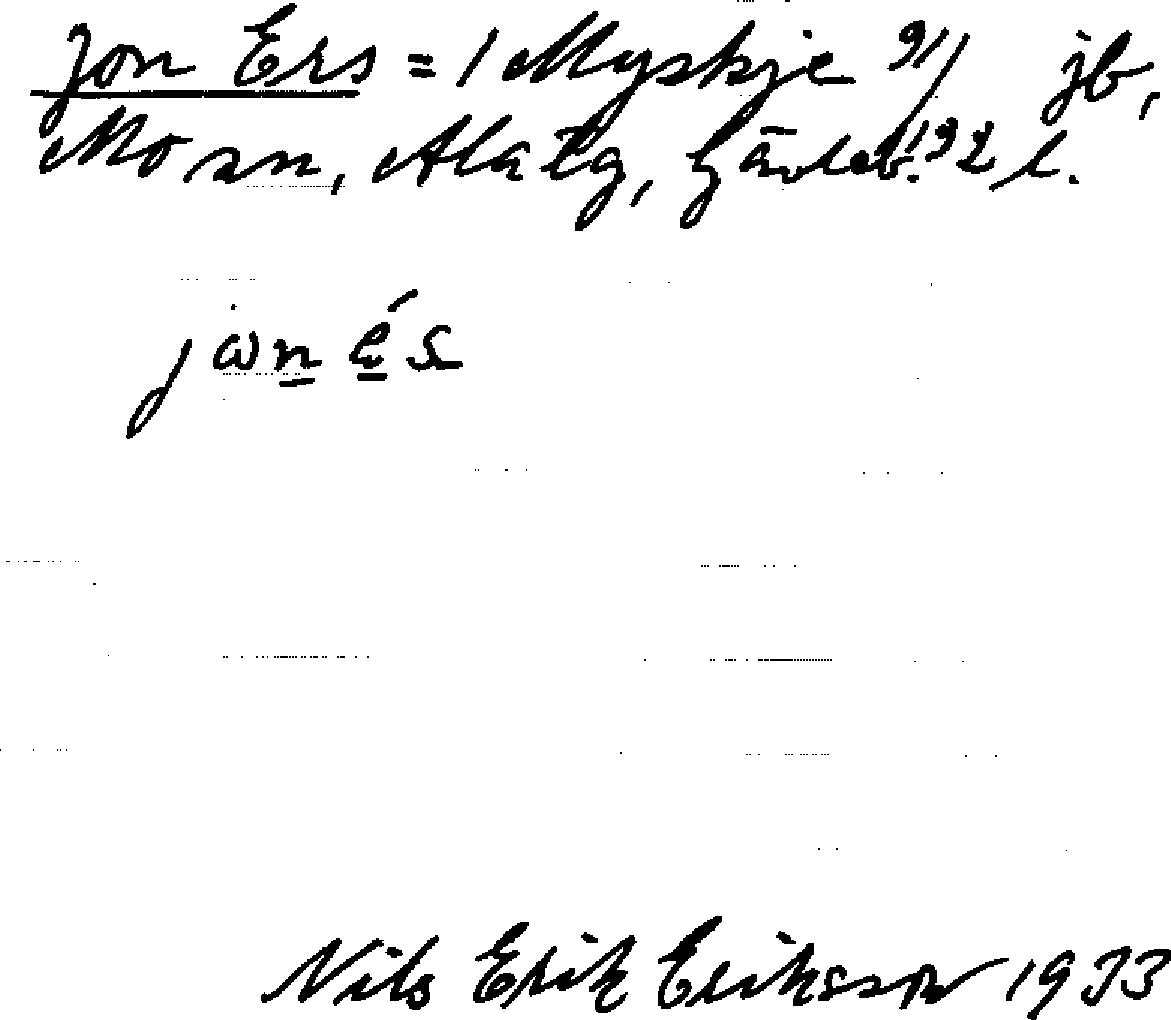 Jon Ers = 1 Myskje 9/1 jb,
Mo sn, Ala tg, Gävleb. 192 l.
jωn és
Nils Erik Eriksson 1933